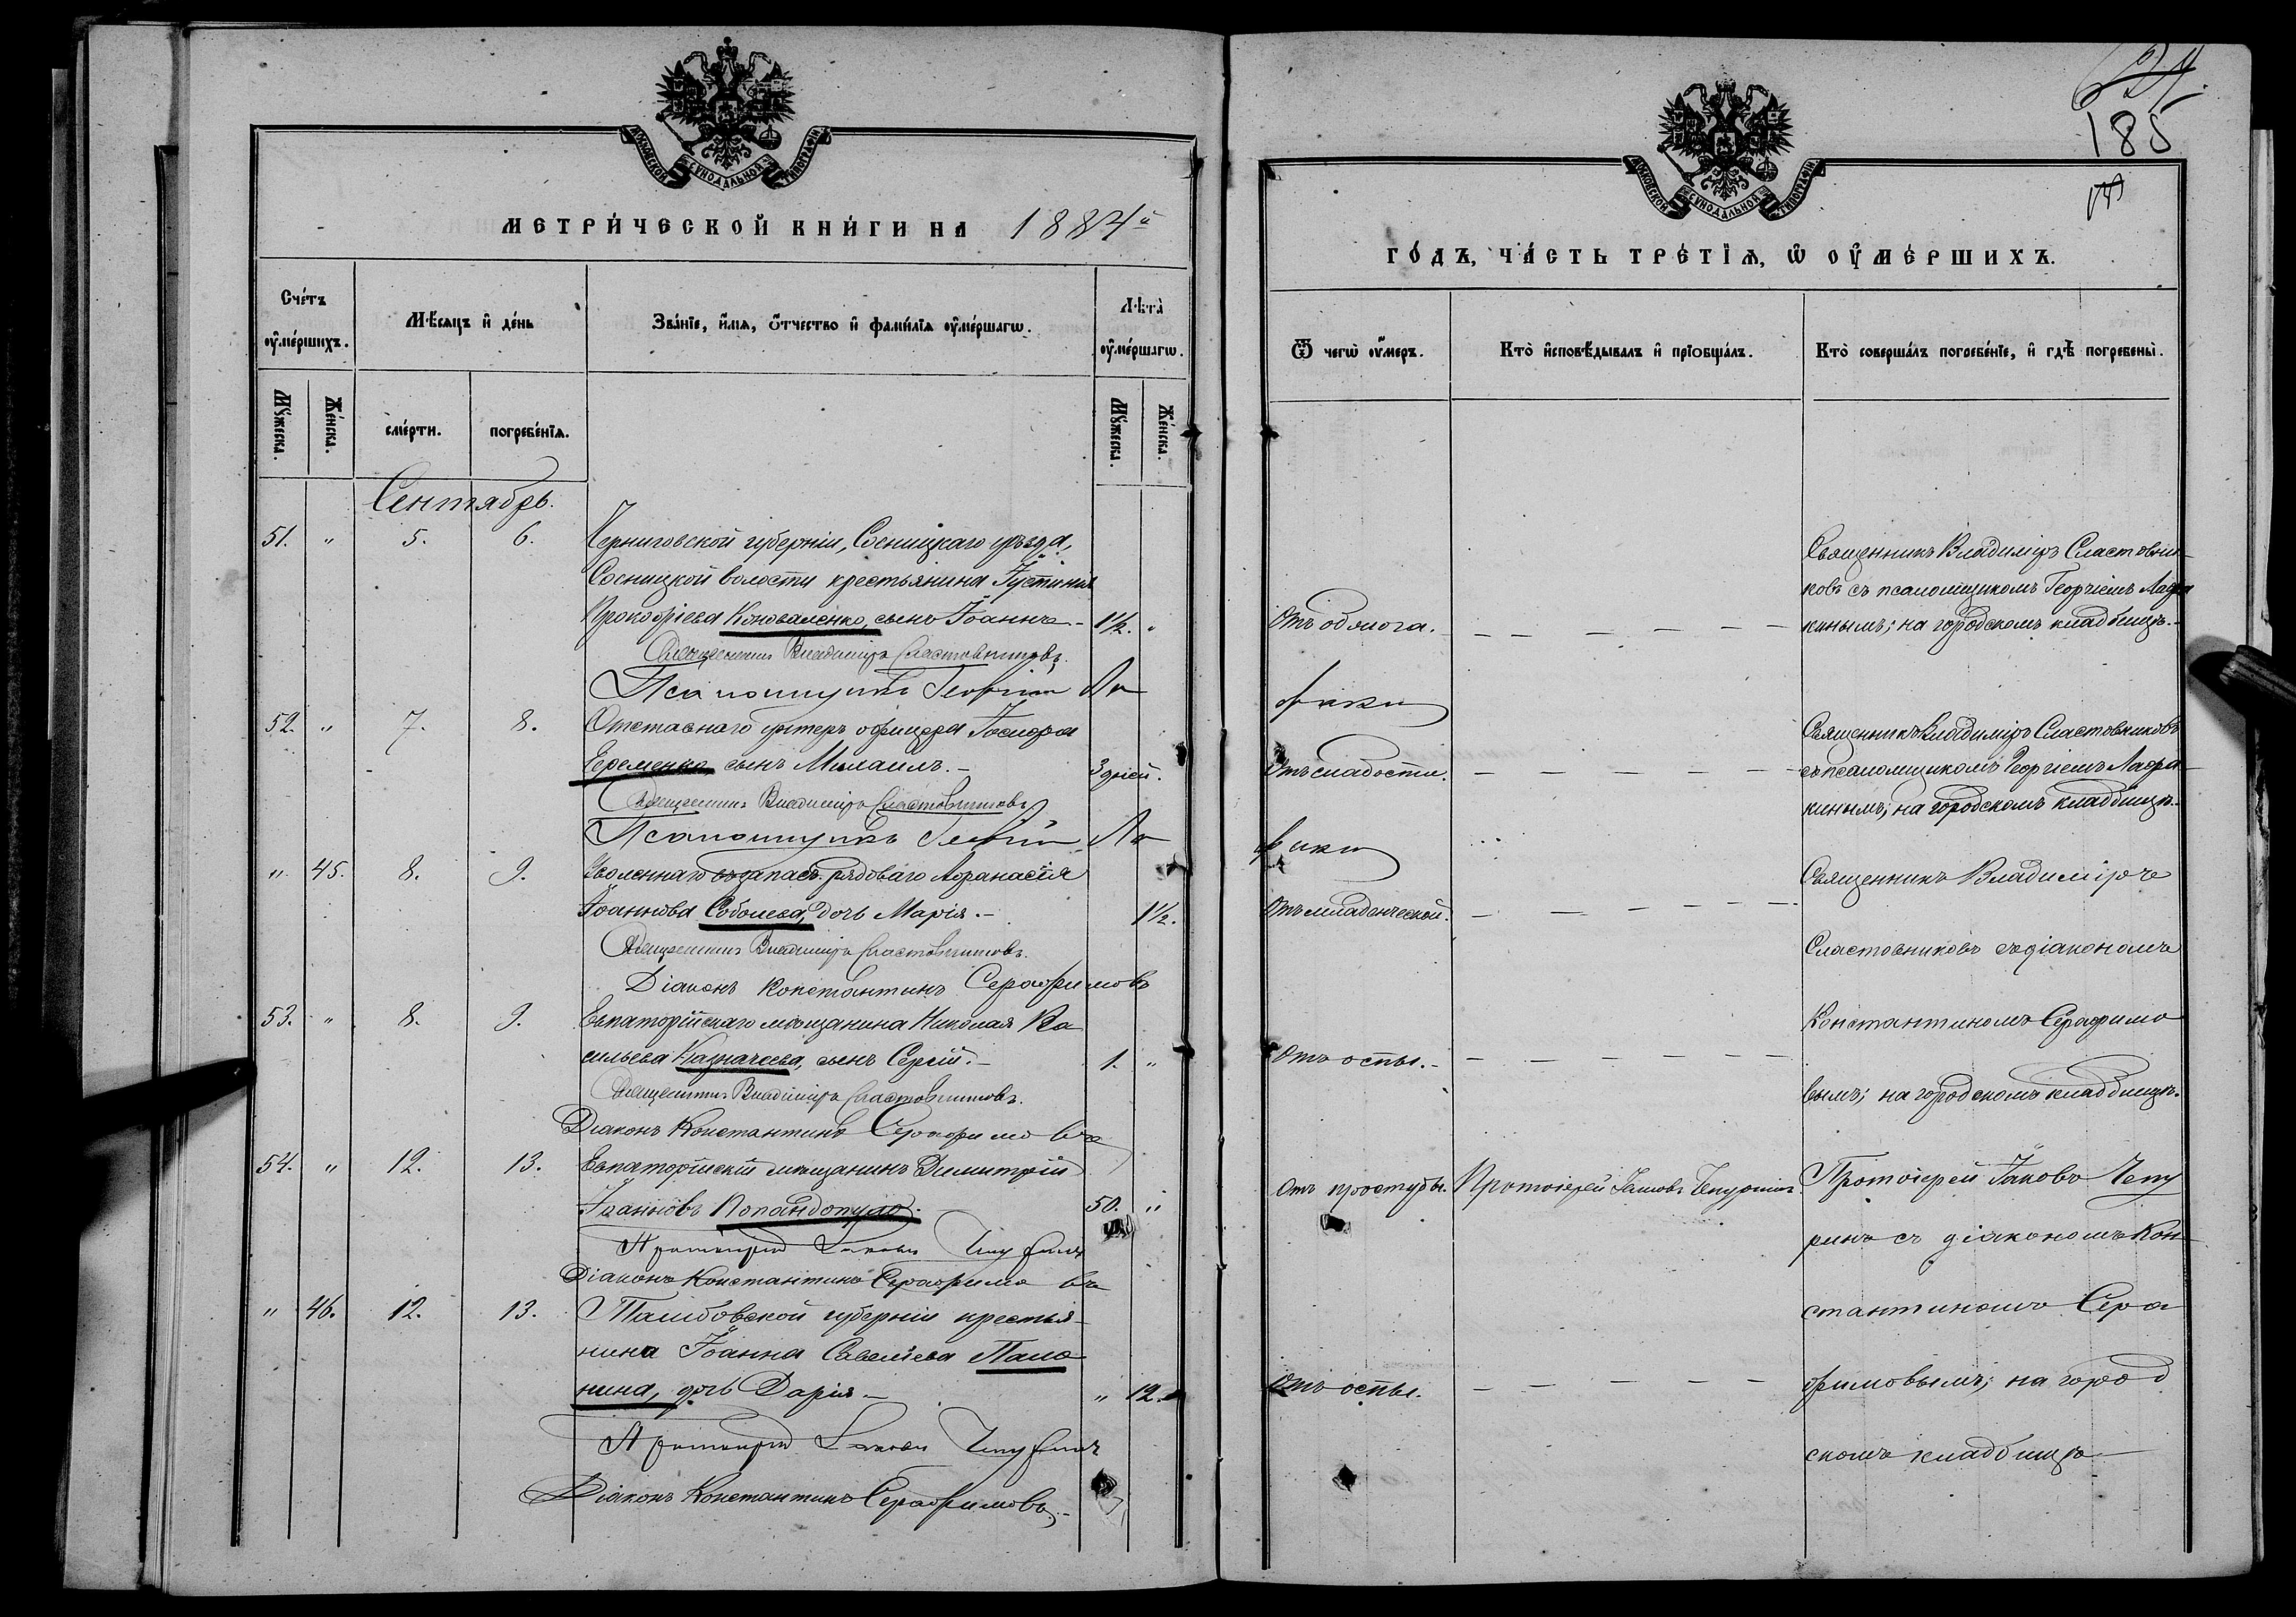 МОСКОВСКОЙ СѴНОДАЛЬНОЙ ТИПОГРАФІИ
МЕТРИ́ЧЕСКОЙ КНИ́ГИ НА 1884й
Сче́тъ ѹ҆ме́ршихъ.
Мѣ́сяцъ и҆ де́нь
Зва́нїе, и҆́мя, ѻ҆́тчество и҆ фамилїя ѹ҆ме́ршагѡ.
Лѣ́та ѹ҆ме́ршагѡ.
Мꙋ́жеска. Же́нска. сме́рти. погребе́нїя. Мꙋ́жеска. Же́нска.
Сентябрь.
51. " 5. 6. Черниговской губерніи, Сосницкаго уѣзда,
Сосницкой волости крестьянина Іустина
Прокофіева Коноваленко, сынъ Іоаннъ - 1½. "
Священникъ Владиміръ Сластовниковъ.
Псаломщикъ Георгій Ла
52. " 7. 8. Отставнаго унтеръ офицера Іосифа
Еременко сынъ Михаилъ. - 3 дней.
Священникъ Владиміръ Сластовниковъ
Псаломщикъ Георгій Ла
" 45. 8. 9. Уволеннаго въ запасъ рядоваго Афанасія
Іоаннова Соболева, дочь Марія. - 1½.
Священникъ Владиміръ Сластовниковъ.
Діаконъ Константинъ Серафимовъ
53. " 8. 9. Евпаторійскаго мѣщанина Николая Ва
сильева Казначеева, сынъ Сергій. - 1. "
Священникъ Владиміръ Сластовниковъ.
Діаконъ Константинъ Серафимовъ
54. " 12. 13. Евпаторійскій мѣщанинъ Димитрій
Іоанновъ Попандопуло. 50. "
Протоіерей Іаковъ Чепуринъ
Діаконъ Константинъ Серафимовъ
" 46. 12. 13. Тамбовской губерніи крестья-
нина Іоанна Савеліева Пала
нина, дочь Дарія. - " 12.
Протоіерей Іаковъ Чепуринъ
Діаконъ Константинъ Серафимовъ.
185
МОСКОВСКОЙ СѴНОДАЛЬНОЙ ТИПОГРАФІИ
ГО́ДЪ, ЧА́СТЬ ТРЕ́ТЇѦ, Ѡ҆ ОУ҆МЕ́РШИХЪ.
Ѿ чегѡ̀ ѹ҆́меръ. Кто̀ и҆сповѣ́дывалъ и҆ прїобща́лъ. Кто̀ соверша́лъ погребе́нїе, и҆ гдѣ̀ погребены̀.
Священникъ Владиміръ Сластовни-
ковъ съ псаломщикомъ Георгіемъ Лафа
Отъ - - - - кинымъ; на городскомъ кладбищѣ.
факи
Священникъ Владиміръ Сластовниковъ
Отъ слабости. - - - - съ псаломщикомъ Георгіемъ Лафа
кинымъ; на городскомъ кладбищѣ.
факи
Священникъ Владиміръ
Отъ младенческой. - - - -
Сластовниковъ съ діакономъ
Константиномъ Серафимо
Отъ оспы. - - - -
вымъ; на городскомъ кладбищѣ.
Отъ простуды. Протоіерей Іаковъ Чепуринъ. Протоіерей Іаковъ Чепу
ринъ съ діакономъ Кон-
стантиномъ Сера
Отъ оспы. - - - - фимовымъ; на город
скомъ кладбищѣ